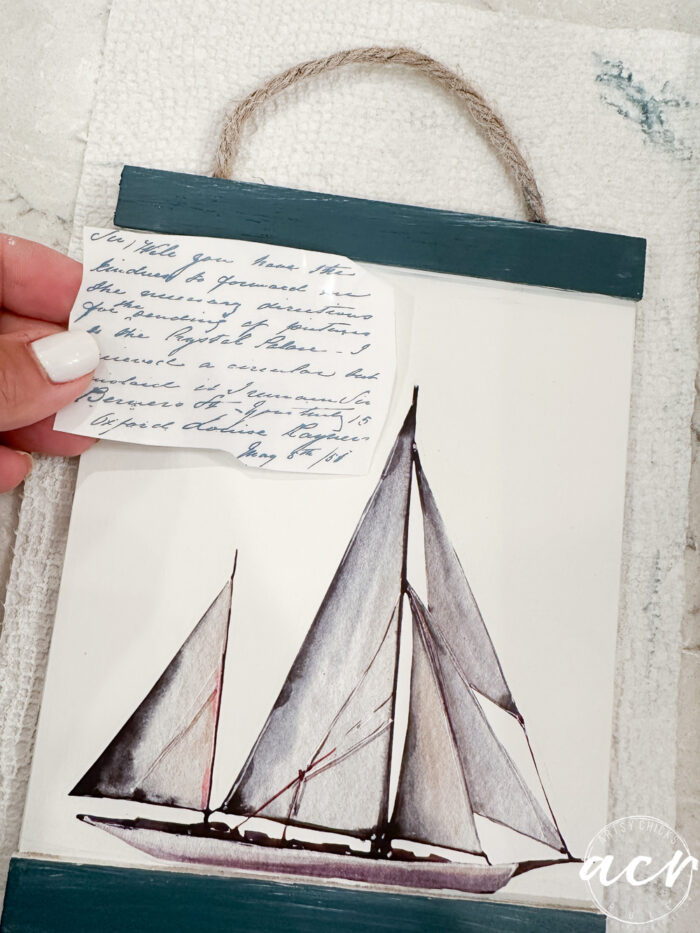 Sir, Will you have the
kindness to forward me
the necessary directions
for the sending of pictures
to the Crystal Palace - I
a circular but
it I remain Sir
Berners St yours truly 15
Oxford Louise Rayner
May 5th /51
ARTSY CHICKS
acr
RULE